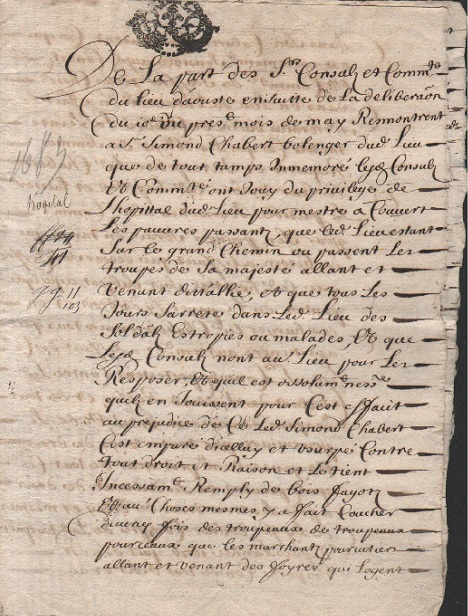 De La part des Srs Consulz et Commte
du lieu daouste ensuitte de La deliberaon
du 10e du presnt mois de may Remontrent
a Sr Simond Chabert bolenger dud Lieu
que de tout tamps Inmemoré lesd Consulz
Et Commte ont Jouy du privilege de
Lhopittal dud Lieu pour mestre a Couvert
Les pauvres passantz, que led Lieu estant
Sur le grand Chemin ou passent Les
troupes de Sa majesté allant et
venant dittallie, et que tous Les
Jours Sarrete dans Led Lieu des
Soldatz Estropiés ou malades, Et que
Lesd Consulz nont au Lieu pour Les
Resposer, Et quil est absolumt nesse
quilz en Jouissent pour Cest effait
au prejudice de Ce Led Simond Chabert
Cest emparé dicelluy et usurpé Contre
tout droit et Raison et Le tient
Incessamt Remply de bois fagotz
Et autre Choses mesmes y a fait Coucher
diverses fois des troupeaux de troupeaux
pourceaux que les marchantz
allant et venant des foyres qui Logent
1689
hopital